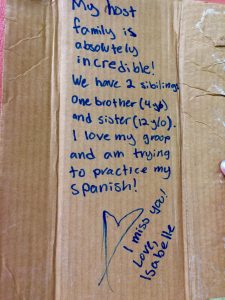 My host
family is
absolutely
incredible!
We have 2 sibilings
one brother (4 y/o)
and sister (12 y/o).
I love my group
and am trying
to practice my
spanish!
I miss you!
Love,
Isabelle